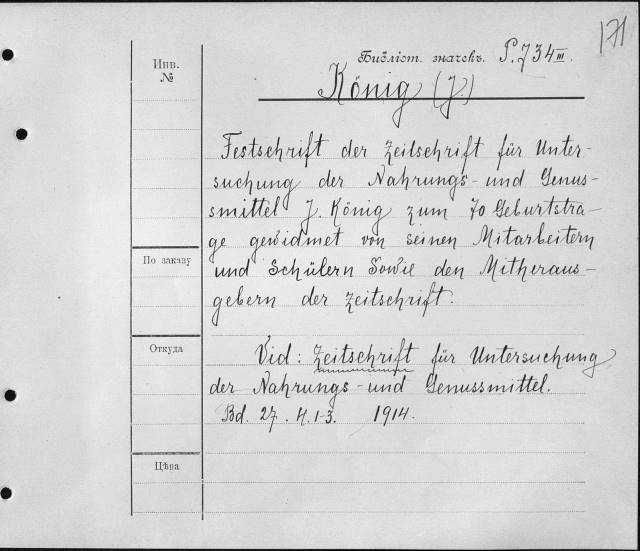 171
Инв.
№
Библіот. значекъ. P.734 III.
König (J.)
Festschrift der Zeitschrift für Unter-
suchung der Nahrungs- und Genus-
smittel J. König zum 70 Geburtstra-
ge gewidmet von seinen Mitarbeitern
По заказу
und Schülern Sowie den Mitheraus-
gebern der Zeitschrift.
Откуда
Vid: Zeitschrift für Untersuchung
der Nahrungs- und Genussmittel.
Bd. 27. H. 1-3. 1914.
Цѣна